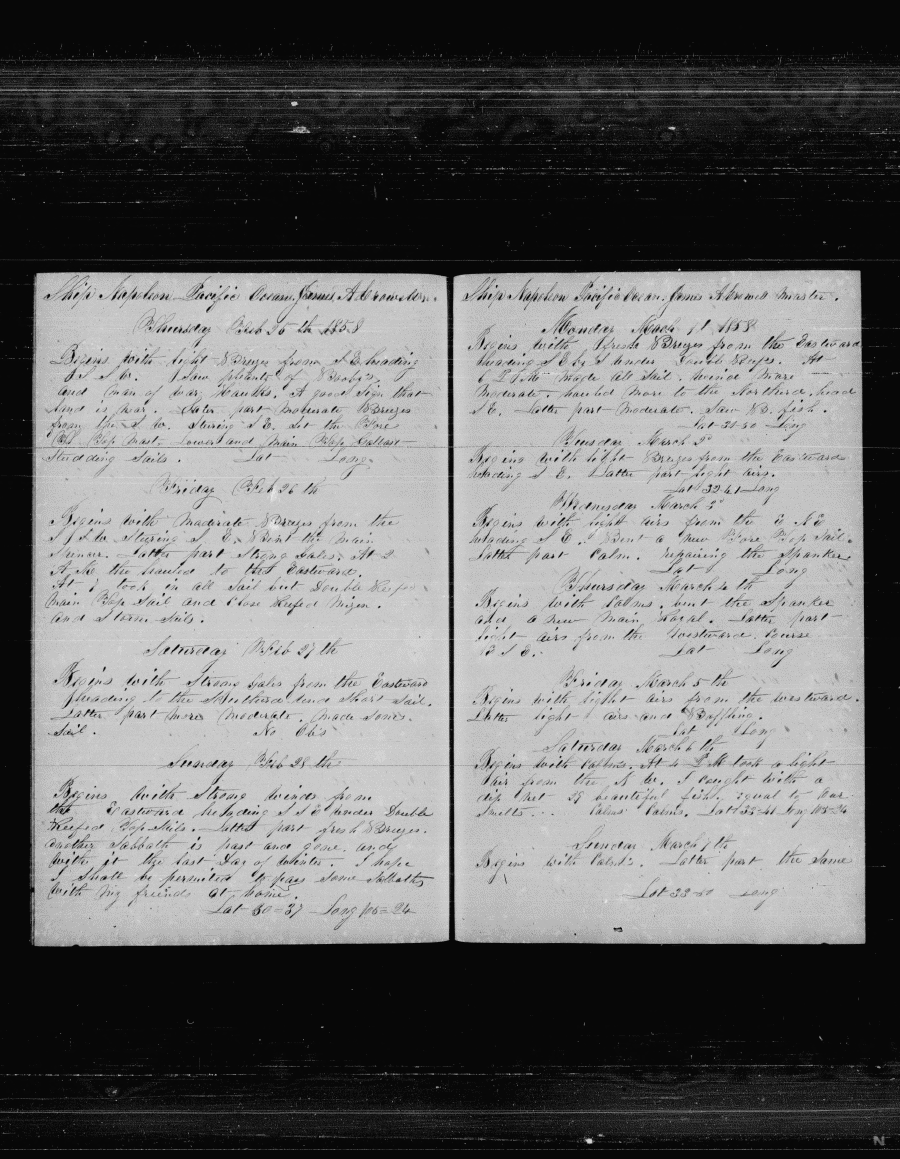 Ship Napoleon Pacific Ocean. James A Crowell
Thursday Feb 25 th 1858
Begins with light Breezes from S E heading
S S W. Saw plenty of Boobys
and man of war Hawks. A good Sign that
land is near. Later part Moderate Breezes
from the S. W. Stering S E. Set the Fore
Top Mast, Lower and Main Top Gallant
Studding Sails. Lat Long
Friday Feb 26 th
Begins with Moderate Breezes from the
S S W Stering S. E. Bent the Main
Spencer. Latter part Strong Gales. At 2
A. M. the hauled to the Eastward.
At took in all Sail but Double Reefed
Main Top Sail and Close Reefed Mizen.
and Storm Sails.
Saturday Feb 27 th
Begins with Strong Gales from the Eastward
heading to the Southerd and Short Sail.
Latter part more moderate. Made Some
Sail. No Obs
Sunday Feb 28 th
Begins With Strong winds from
the Eastward heading S S E under Double
Reefed Top Sails. Latter part fresh Breezes.
another Sabbath is past and gone and
with it the last Day of Winter. I hope
I Shall be permited to pass Some Sabbaths
with My friends at home.
Lat 30=37 Long 105=24
Ship Napoleon Pacific Ocean. James A Crowell Master.
Monday March 1st 1858
Begins with Fresh Breezes from the Eastward
heading S E by S under Double Reefs. At
6 P M made all Sail. wind More
Moderate. hauled more to the Northerd, head
S E. Latter part Moderate. Saw B. fish.
Lat Long
Tuesday March 2d
Begins with light Breezes from the Eastward
heading S E. Latter part light airs.
Lat 32-41 Long
Wednesday March 3d
Begins with light airs from the E N E
heading S E. Bent a new Fore Top Sail
Latter part Calm. repairing the Spanker
Lat Long
Thursday March 4 th
Begins with Calms. bent the Spanker
and a new Main Royal. Latter part
light airs from the Westward. Course
S E. Lat Long
Friday March 5 th
Begins with light airs from the westward.
Latter light airs and Baffling.
Lat Long
Saturday March 6 th
Begins with Calms. At 4 P M took a light
air from the N W. I caught with a
dip Net 29 beautiful fish, equal to our
Smelts. Calms Calms. Lat 33-41 Long 105-24
Sunday March 7 th
Begins with Calms. Latter part the Same
Lat Long